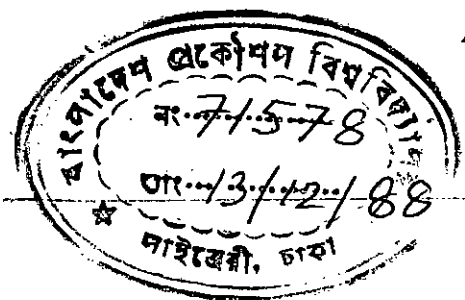 বাংলাদেশ প্রকৌশল বিশ্ববিদ্যালয়
নং...71578
তাং...13/12/88
লাইব্রেরী, ঢাকা